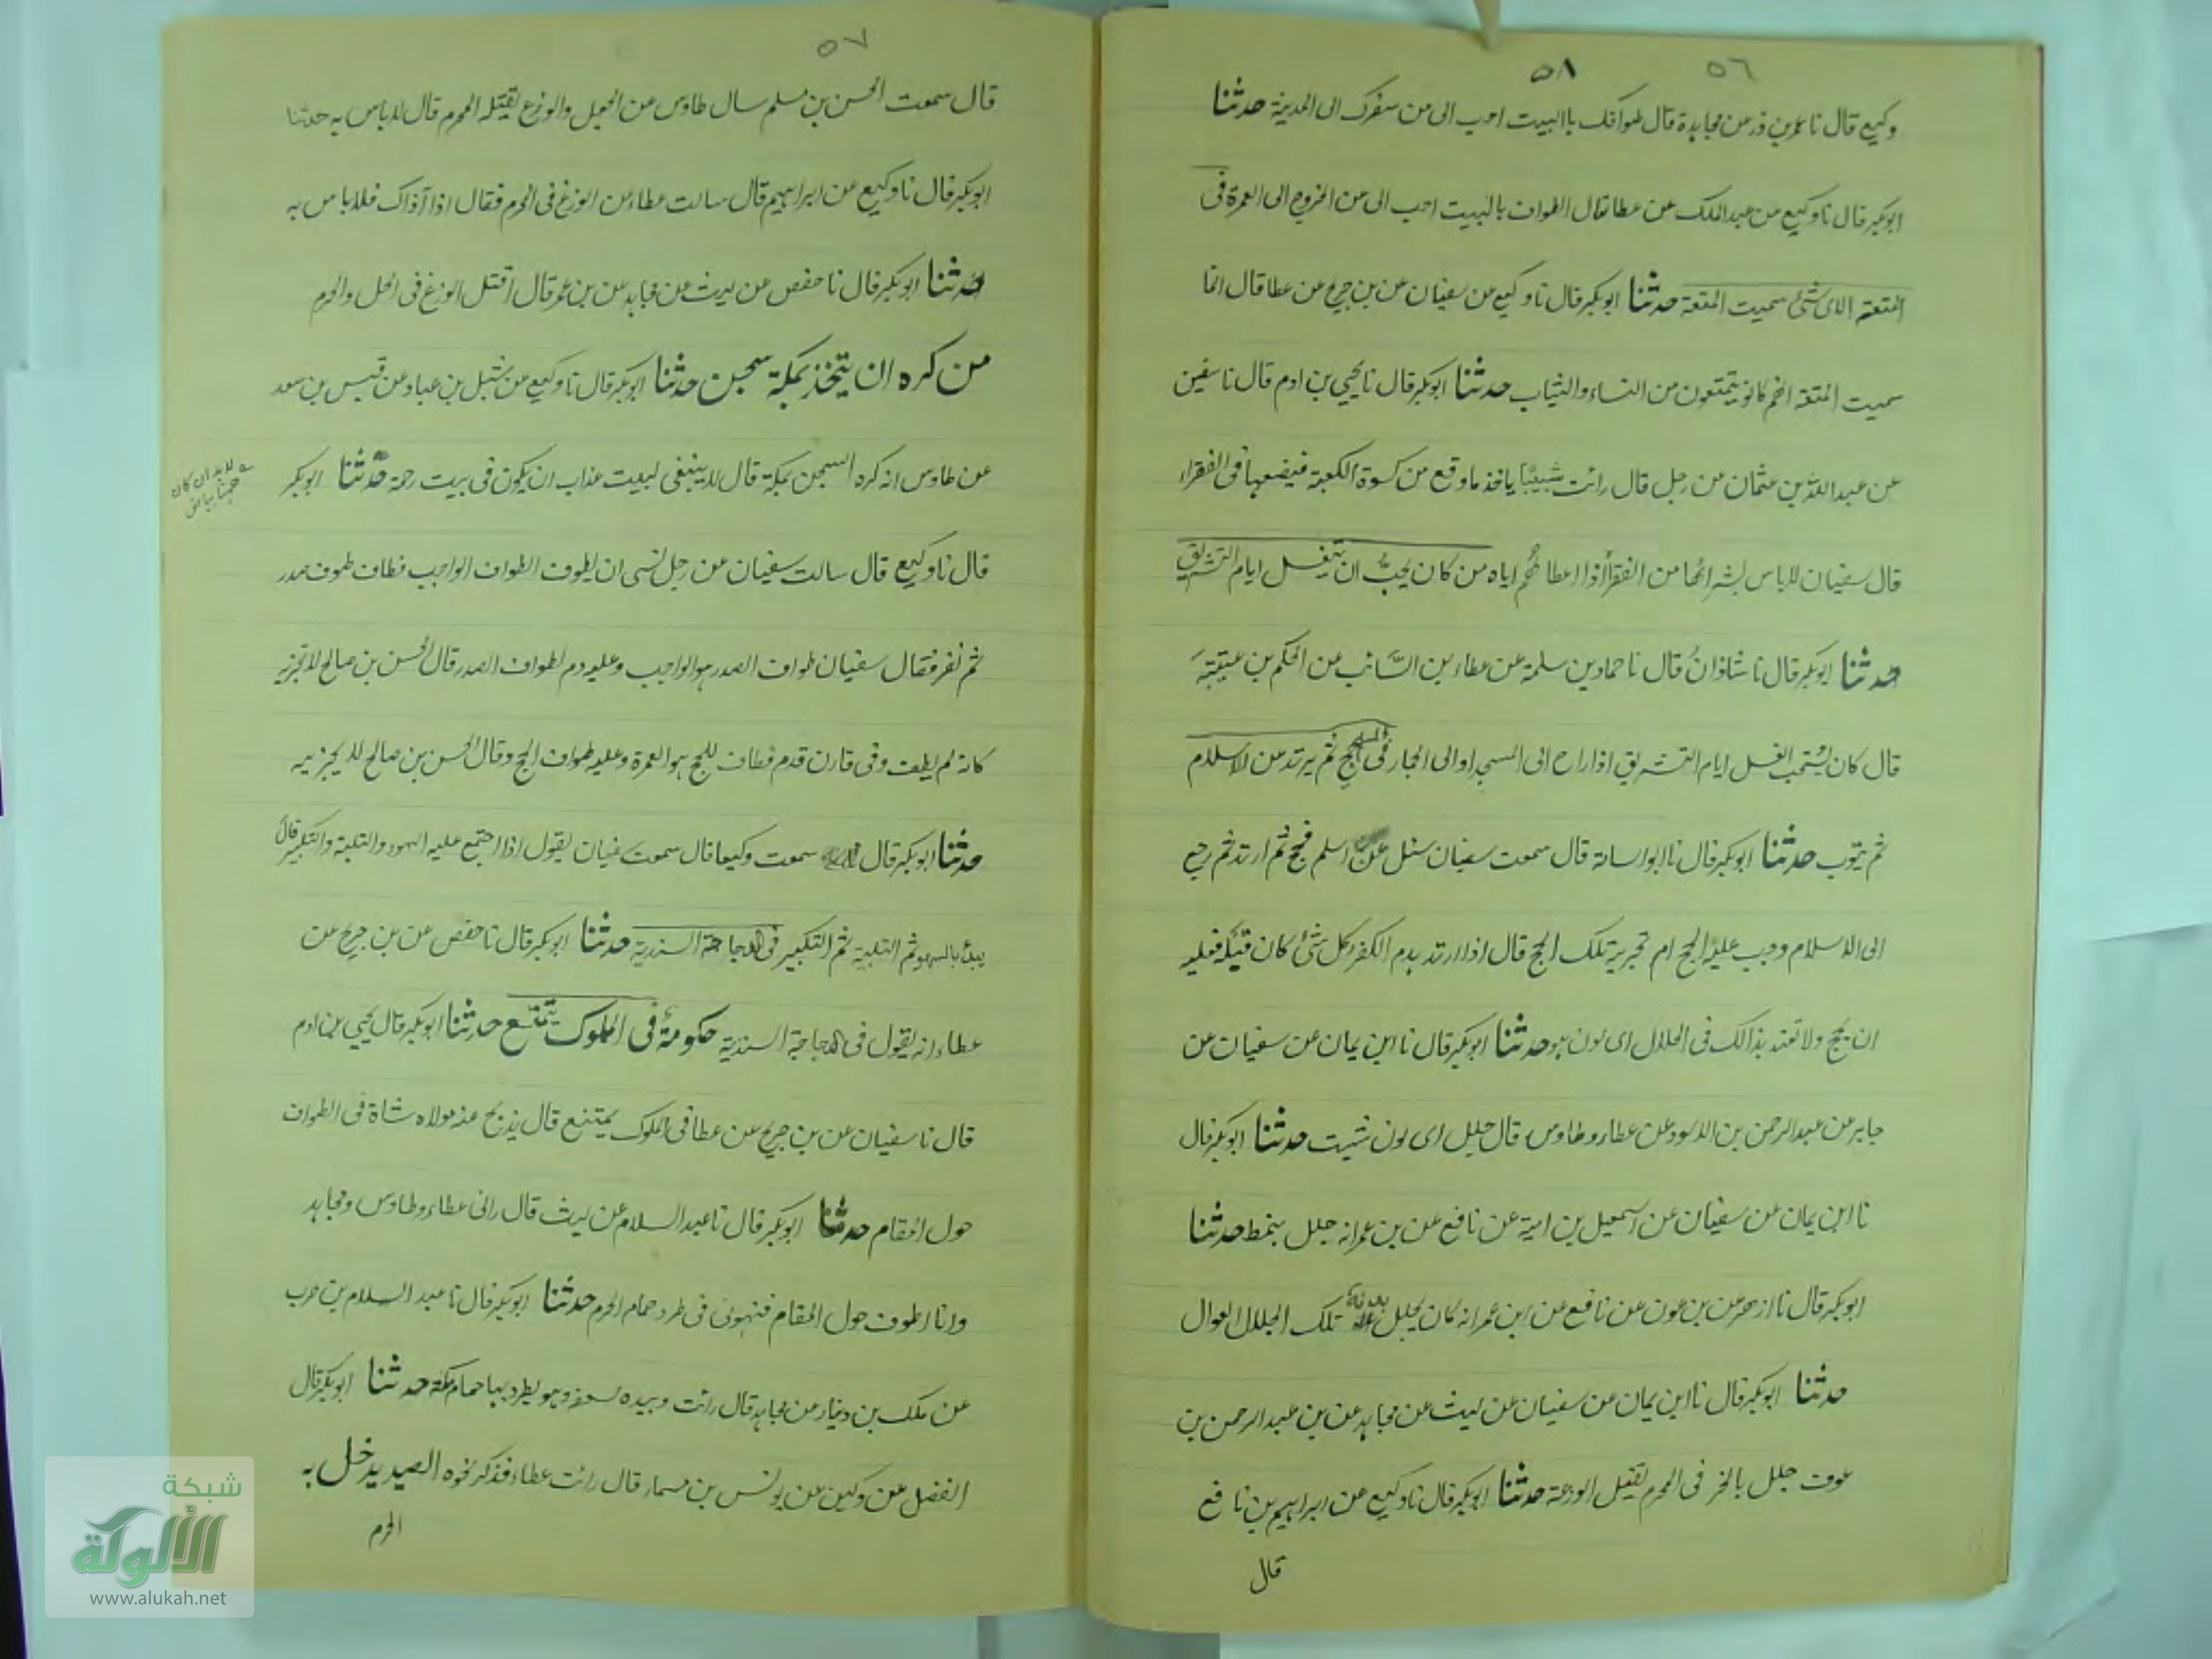 ٥٦
٥٨
وكيع قال نا عمر بن ذر عن مجاهدة قال طوافك باالبيت احب الى من سفرك الى المدينة حدثنا
ابوبكر قال نا وكيع عن عبد الملك عن عطا قال الطواف بالبيت احب الى من الخروج الى العمرة فى
المتعة لاى شئ سميت المتعة حدثنا ابوبكر قال نا وكيع عن سفيان عن بن جريج عن عطا قال انما
سميت المتعة انهم كانو يتمتعون من النساء والثياب حدثنا ابوبكر قال نا يحيى بن ادم قال نا سفين
عن عبد الله بن عثمان عن رجل قال رائت شيبة ياخذ ما وقع من كسوة الكعبة فيضعها فى الفقراء
قال سفيان لاباس بشرائها من الفقرأ اذا اعطاهم اياه من كان يحب ان يتغسل ايام التشريق
حدثنا ابوبكر قال نا شاذان قال نا حماد بن سلمة عن عطاء بن السائب عن الحكم بن عتيبة
قال كان يستحب الغسل ايام التشريق اذا راح الى المسجد او الى الجمار فى الحج ثم يرتد من الاسلام
ثم يتوب حدثنا ابوبكر قال نا ابو اسامة قال سمعت سفيان سئل عن اسلم فحج ثم ارتد ثم رجع
الى الاسلام وجب عليه الحج ام تجزيه تلك الحج قال اذا ارتد يدم الكفر كل شئ كان قبله فعليه
ان يحج ولا تعتد بذالك فى الجلال اى لون هو حدثنا ابوبكر قال نا ابن يمان عن سفيان عن
جابر عن عبد الرحمن بن الاسود عن عطاء وطاوس قال جلل اى لون شيت حدثنا ابوبكر قال
نا ابن يمان عن سفيان عن اسمعيل بن امية عن نافع عن بن عمر انه جلل بنمط حدثنا
ابوبكر قال نا ازهر عن بن عون عن نافع عن ابن عمر انه كان يجلل بدنه تلك الجلال العوال
حدثنا ابوبكر قال نا ابن يمان عن سفيان عن ليث عن مجاهد عن بن عبد الرحمن بن
عوف جلل بالخز فى المحرم يقتل الوزعة حدثنا ابوبكر قال نا وكيع عن ابراهيم بن نافع
قال
٥٧
قال سمعت الحسن بن مسلم سال طاوس عن الجعل والوزع يقتله المحرم قال لاباس به حدثنا
ابوبكر قال نا وكيع عن ابراهيم قال سالت عطا عن الوزغ فى الحرم فقال اذا آذاك فلا باس به
حدثنا ابوبكر قال نا حفص عن ليث عن مجاهد عن بن عمر قال اقتل الوزغ فى الحل والحرم
من كره ان يتخذ بمكة سجن حدثنا ابوبكر قال نا وكيع عن شبل بن عباد عن قيس بن سعد
عن طاوس انه كره السجن بمكة قال لا ينبغى لبيت عذاب ان يكون فى بيت رحمة حدثنا ابوبكر
لابد ان كان
ههنا بياض
قال نا وكيع قال سالت سفيان عن رجل نسى ان يطوف الطواف الواجب فطاف طوف صدر
ثم نفر فقال سفيان طواف الصدر هو الواجب وعليه دم لطواف الصدر قال الحسن بن صالح لا تجزيه
كانه لم يطف وفى قارن قدم فطاف للحج هو العمرة وعليه طواف الحج وقال الحسن بن صالح لا يجزيه
حدثنا ابوبكر قال سمعت وكيعا قال سمعت سفيان يقول اذا اجتمع عليه السهو والتلبية والتكبير قال
يبدأ بالسهو ثم التلبية ثم التكبير فى الدجاجة السندية حدثنا ابوبكر قال نا حفص عن بن جريج عن
عطاء انه يقول فى الدجاجة السندية حكومة فى المملوك يتمتع حدثنا ابوبكر قال يحيى بن ادم
قال نا سفيان عن بن جريج عن عطا فى المملوك يمتنع قال يذبح عنه مولاه شاة فى الطواف
حول المقام حدثنا ابوبكر قال نا عبد السلام عن ليث قال رانى عطاء وطاوس ومجاهد
وانا اطوف حول المقام فنهونى فى طرد حمام الحرم حدثنا ابوبكر قال نا عبد السلام بن حرب
عن ملك بن دينار عن مجاهد قال رائت وبيده سعفه وهو يطرد بها حمام مكة حدثنا ابوبكر قال
الفضل عن وكين عن يونس بن مسمار قال رائت عطاء فذكر نحوه الصيد يدخل به
الحرم
شبكة
الألوكة
www.alukah.net